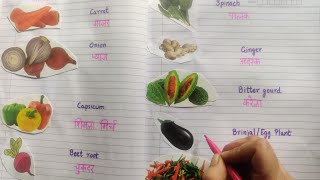 Carrot
गाजर
Onion
प्याज
Capsicum
शिमला मिर्च
Beet root
चुकंदर
Spinach
पालक
Ginger
अदरक
Bitter gourd
करेला
Brinjal/Egg Plant